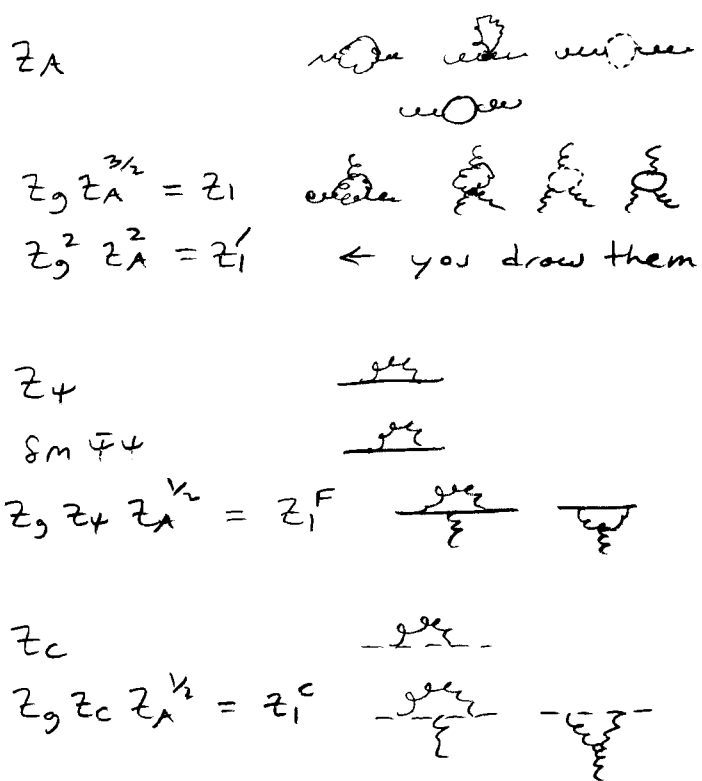 Z_A
Z_g Z_A^{3/2} = Z_1
Z_g^2 Z_A^2 = Z_1' ← you draw them
Z_ψ
δm ψ̄ψ
Z_g Z_ψ Z_A^{1/2} = Z_1^F
Z_c
Z_g Z_c Z_A^{1/2} = Z_1^c